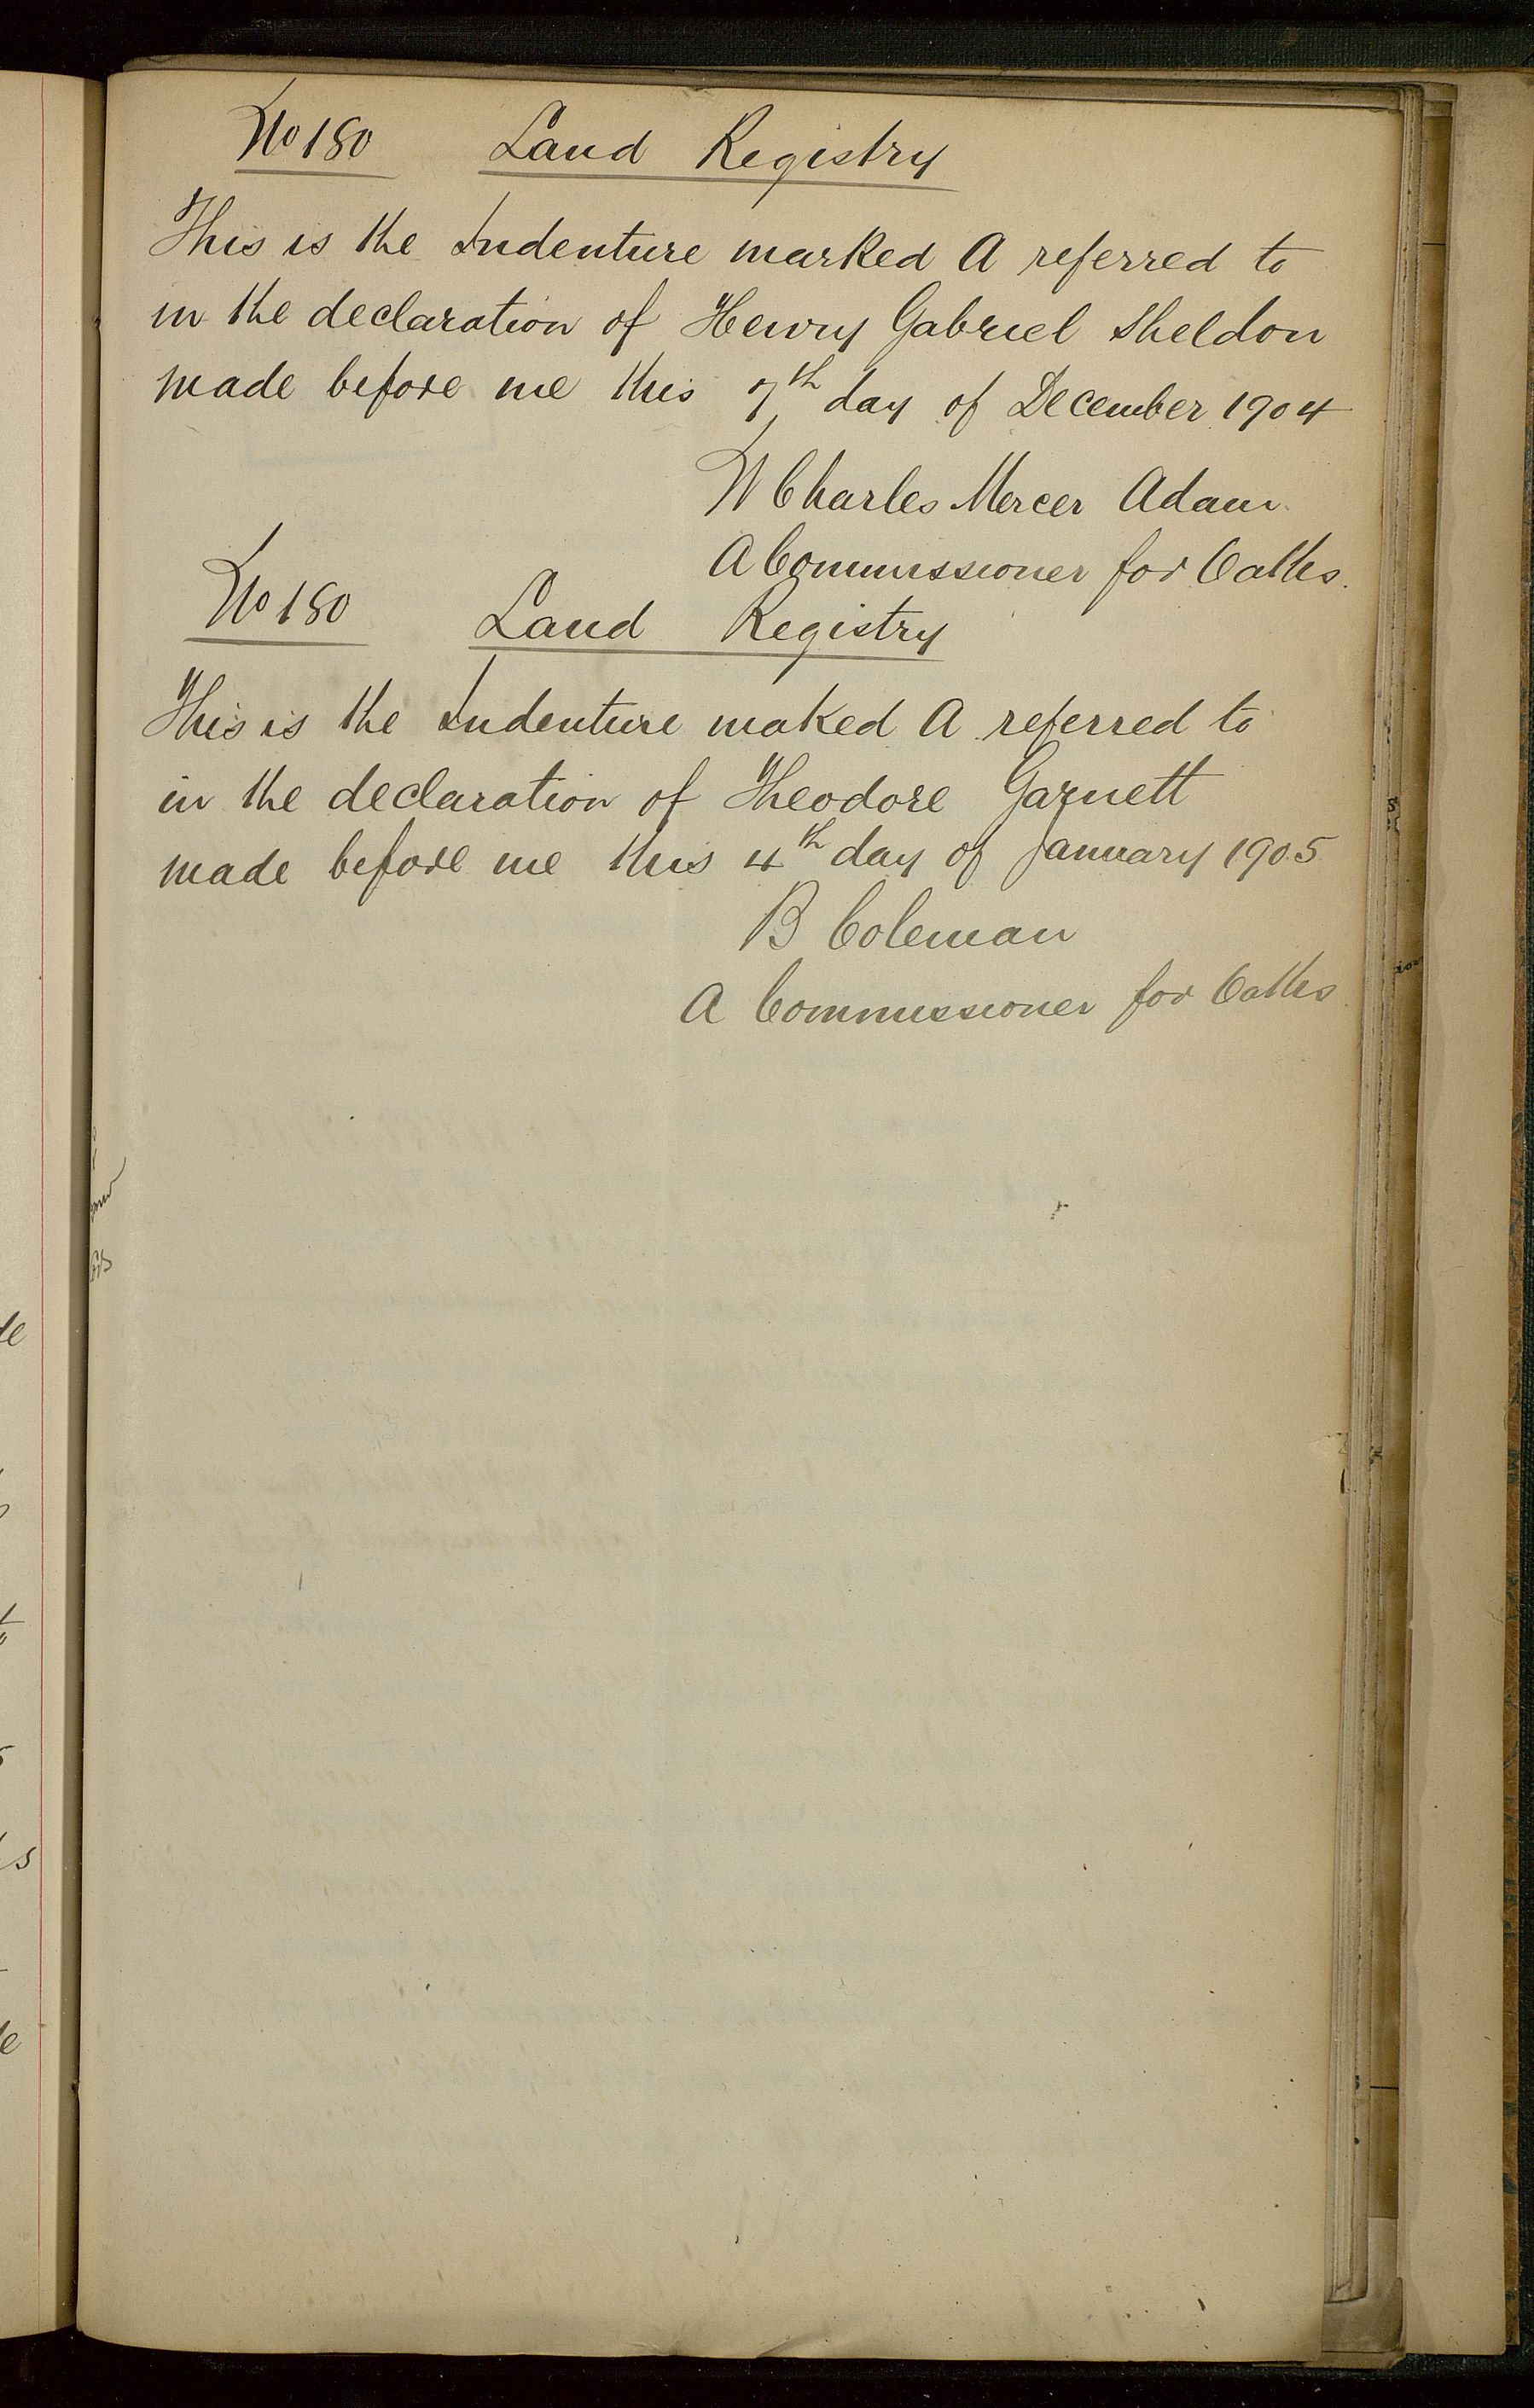 No 180 Land Registry
This is the Indenture marked A referred to
in the declaration of Henry Gabriel Sheldon
made before me this 7th day of December 1904
W Charles Mercer Adam
A Commissioner for Oaths.
No 180 Land Registry
This is the Indenture maked A referred to
in the declaration of Theodore Garnett
made before me this 4th day of January 1905
B Coleman
A Commissioner for Oaths